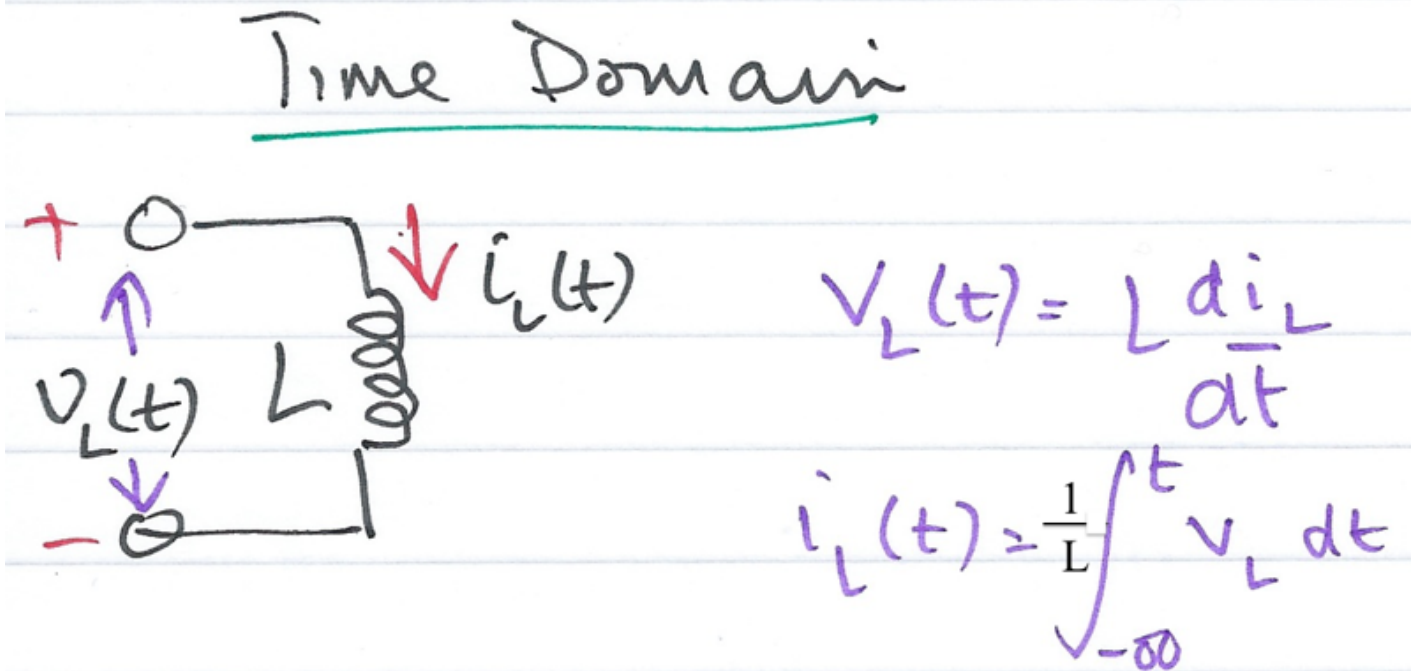 Time Domain
+
i_L(t)
V_L(t) = L di_L/dt
V_L(t) L
-
i_L(t) = 1/L ∫_{-∞}^{t} V_L dt